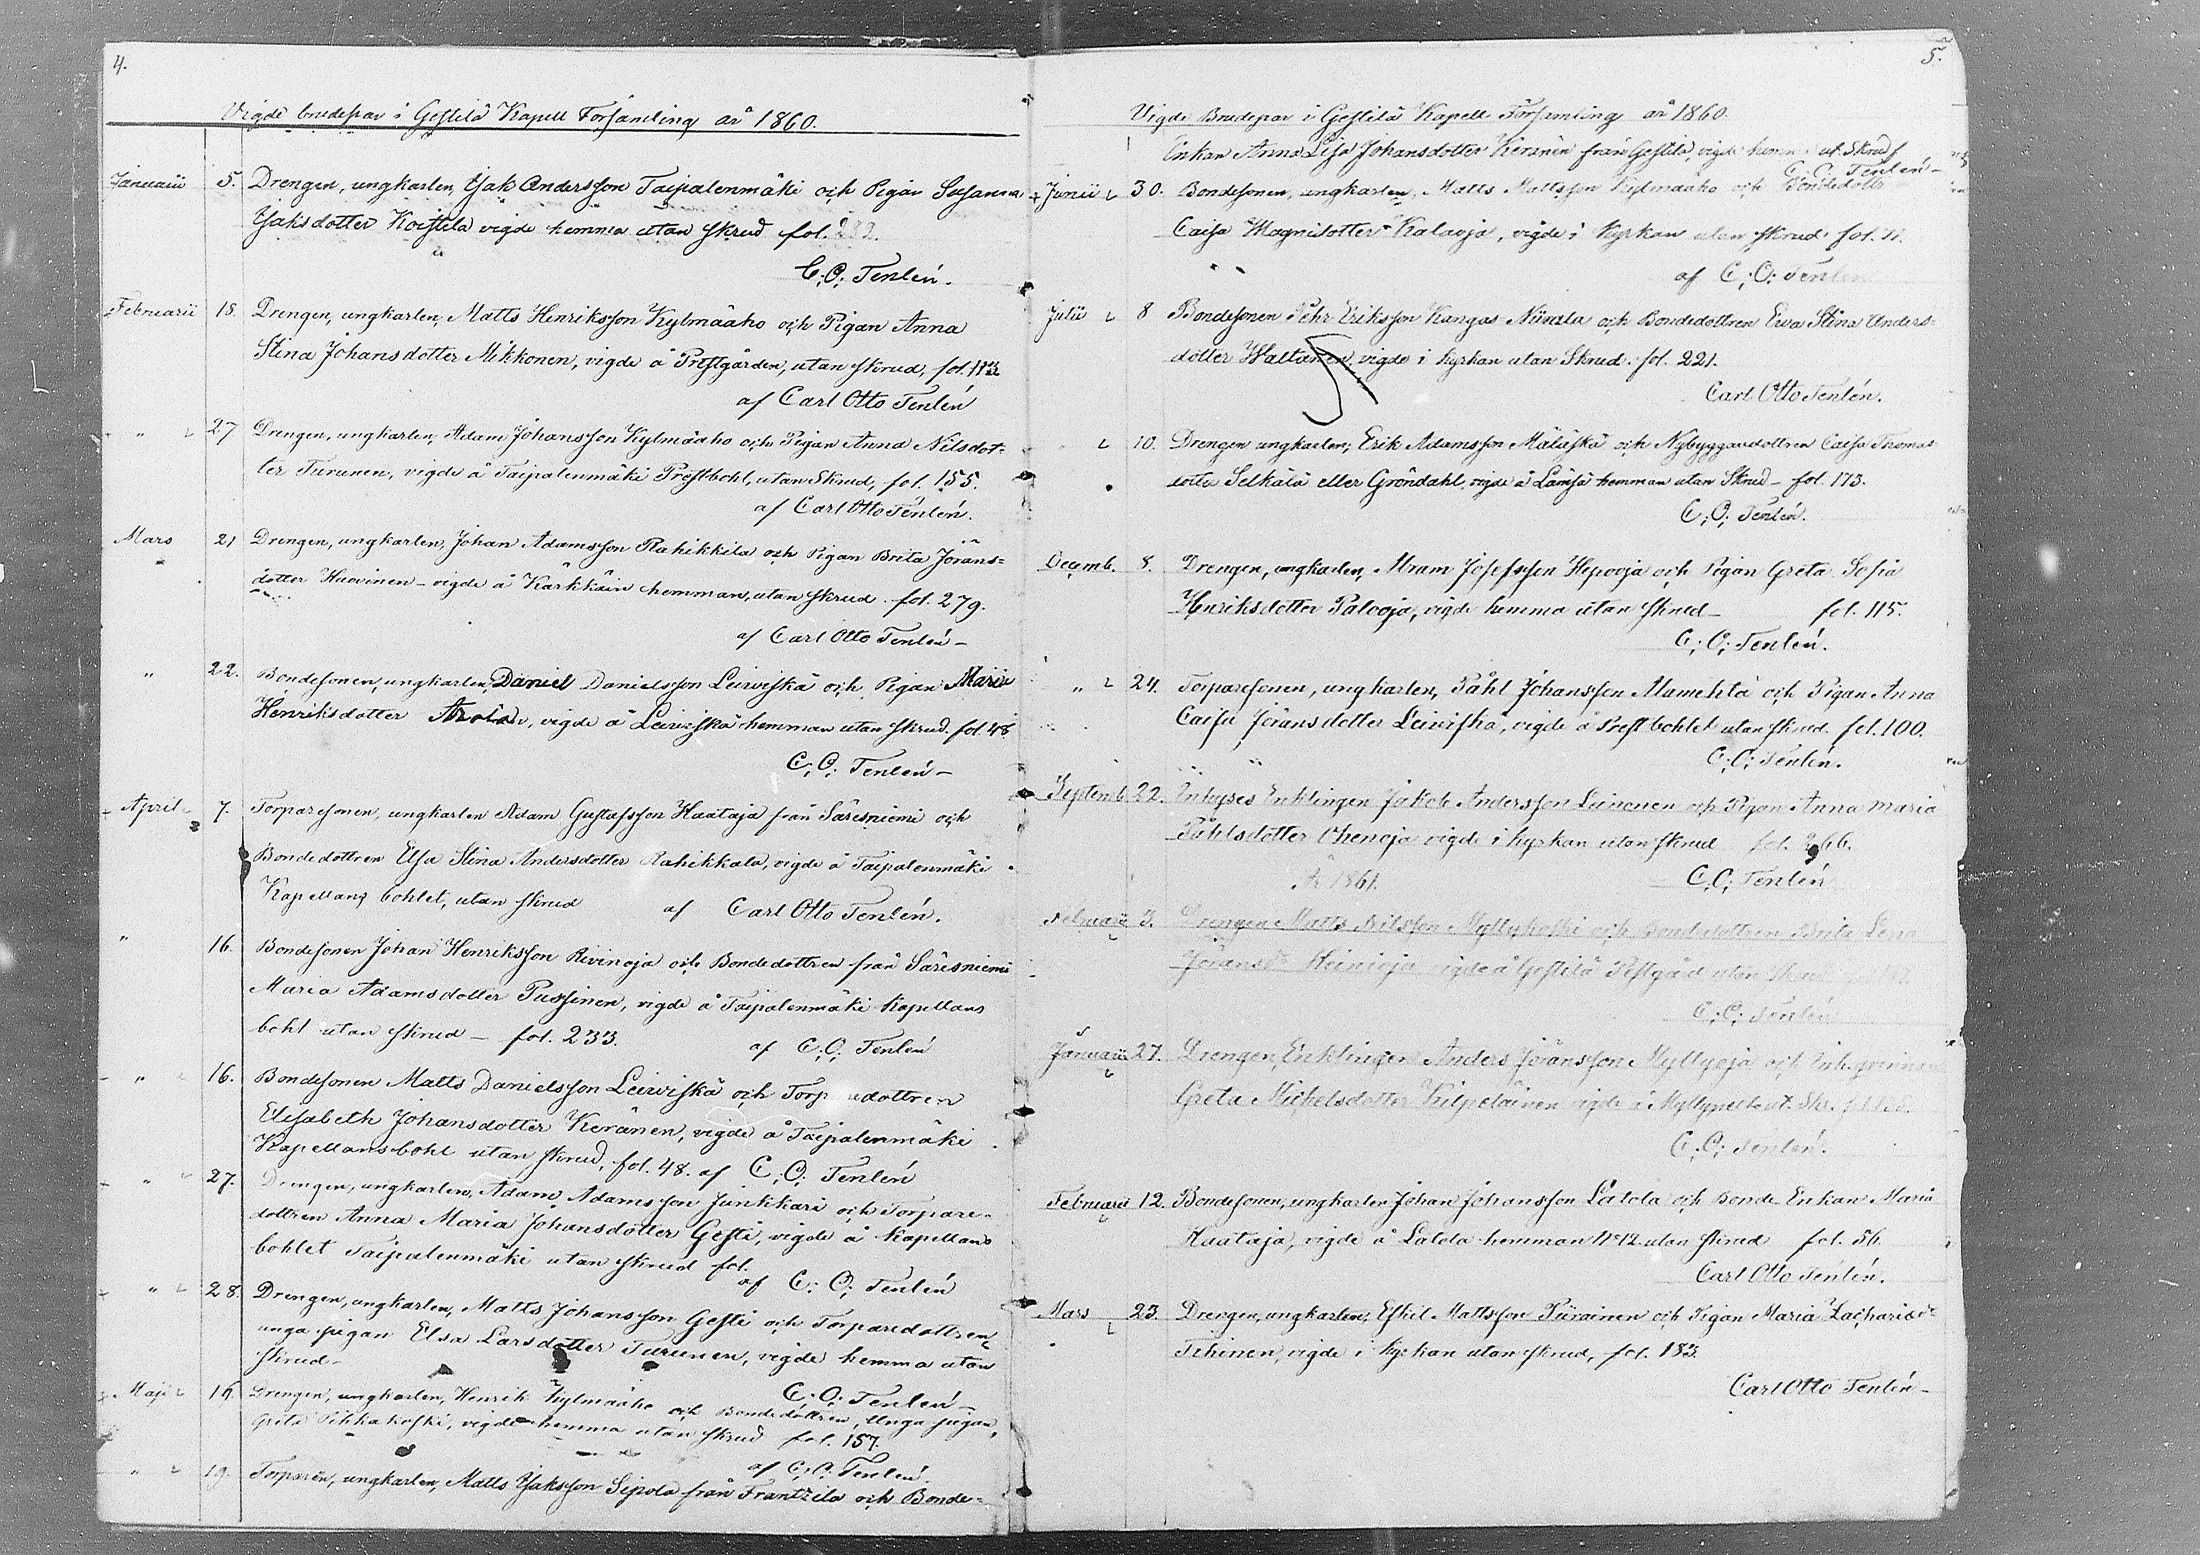 4.
Vigde brudepar i Gestilä Kapell Församling år 1860.
Januarii 5. Drengen, ungkarlen, Isak Andersson Taipalenmäki och Pigan Susanna
Isaksdotter Koistila vigde hemma utan skrud fol. 282.
C: O: Tenlén.
Februarii 18. Drengen, ungkarlen, Matts Henriksson Kylmäaho och Pigan Anna
Stina Johansdotter Mikkonen, vigde å Prestgården, utan skrud, fol. 113
af Carl Otto Tenlén
" 27 Drengen, ungkarlen, Adam Johansson Kylmäaho och Pigan Anna Nilsdot-
ter Turunen, vigde å Taipalenmäki Prestbohl, utan Skrud, fol. 155.
af Carl Otto Tenlén.
Mars 21 Drengen, ungkarlen, Johan Adamsson Rahikkila och Pigan Brita Jörans-
dotter Huovinen – vigde å Kärkkäin hemman, utan skrud. fol. 279.
af Carl Otto Tenlén –
" 22. Bondesonen, ungkarlen, Daniel Danielsson Leiviskä och Pigan Maria
Henriksdotter vigde å Leiviskä hemman utan skrud. fol. 48
C; O; Tenlén –
April 7. Torparesonen, ungkarlen Adam Gustafsson Haataja från Säresniemi och
Bondedottren Elsa Stina Andersdotter Rahikkala, vigde å Taipalenmäki
Kapellans bohlet, utan skrud af Carl Otto Tenlén.
" 16. Bondesonen Johan Henriksson Rivinoja och Bondedottren från Säresniemi
Maria Adamsdotter Pussinen, vigde å Taipalenmäki Kapellans
bohl utan skrud – fol. 233. af C. O. Tenlén
" 16. Bondesonen Matts Danielsson Leiviskä och dottren
Elisabeth Johansdotter Keränen, vigde å Taipalenmäki
Kapellansbohl utan skrud, fol. 48. af C; O; Tenlén
" 27. Drengen, ungkarlen, Adam Adamsson Junkkari och Torpare-
dottren Anna Maria Johansdotter Gesti, vigde å Kapellans
bohlet Taipalenmäki utan skrud fol.
af C: O; Tenlén
" 28. Drengen, ungkarlen, Matts Johansson Gesti och Torparedottren
unga pigan Elsa Larsdotter Turunen, vigde hemma utan
skrud –
C. O: Tenlén –
Maji 14. Drengen, ungkarlen, Henrik Kylmäaho och Bondedottren, Unga pigan,
Greta Pihkakoski, vigde hemma utan skrud fol. 157.
af C; O. Tenlén.
" 19. Torparen, ungkarlen, Matts Isaksson Sipola från Frantzila och Bonde-
5.
Vigde Brudepar i Gestilä Kapell Församling år 1860.
Enkan Anna Lisa Johansdotter Keränen från Gestilä, vigde hemma ut. Skrud
C. O: Tenlén –
Junii 30. Bondesonen, ungkarlen, Matts Mattsson Kylmäaho och Bondedottr
Caisa Magnidotter Kalaoja, vigde i Kyrkan utan skrud fol. 11.
af C; O; Tenlén
Julii 8 Bondesonen Pehr Eriksson Kangas Nivala och Bondedottren Ewa Stina Anders-
dotter Waltanen, vigde i kyrkan utan Skrud. fol. 221.
Carl Otto Tenlén.
10. Drengen ungkarlen, Erik Adamsson Määtskä och Nybyggaredottren Caisa Thomas
dotter Selkälä eller Gröndahl, vigde å Lämsä hemman utan Skrud – fol. 173.
C; O; Tenlén.
Decemb. 8. Drengen, ungkarlen, Abram Josefsson Hepooja och Pigan Greta Sofia
Henriksdotter Palooja, vigde hemma utan skrud – fol. 115.
C; O; Tenlén.
" 24. Torparesonen, ungkarlen, Påhl Johansson Mamehtä och Pigan Anna
Caisa Jöransdotter Leiviskä, vigde å Prestbohlet utan skrud. fol. 100.
C; O; Tenlén.
Septemb. 22. Inhyses Enklingen Jakob Andersson Leinonen och Pigan Anna Maria
Påhlsdotter Ohenoja vigde i kyrkan utan skrud fol. 266.
År 1861. C. O; Tenlén
Februarii 3. Drengen Matts Nilsson Myllykoski och Bondedottren Brita Lena
Jöransdr Heinioja vigde å Gestilä Prestgård utan
C; O; Tenlén
Januarii 27. Drengen, Enklingen Anders Jöransson Myllyoja och Inh.
Greta Michelsdotter Kilpeläinen vigde å ut. Skr.
C; O; Tenlén.
Februarii 12. Bondesonen, ungkarlen Johan Johansson Latola och Bonde Enkan Maria
Haataja, vigde å Latola hemman No 12 utan skrud fol. 56.
Carl Otto Tenlén.
Mars 23. Drengen, ungkarlen, Eskil Mattsson Piirainen och Pigan Maria Zacharisdr
Tihinen, vigde i kyrkan utan skrud, fol. 183.
Carl Otto Tenlén –